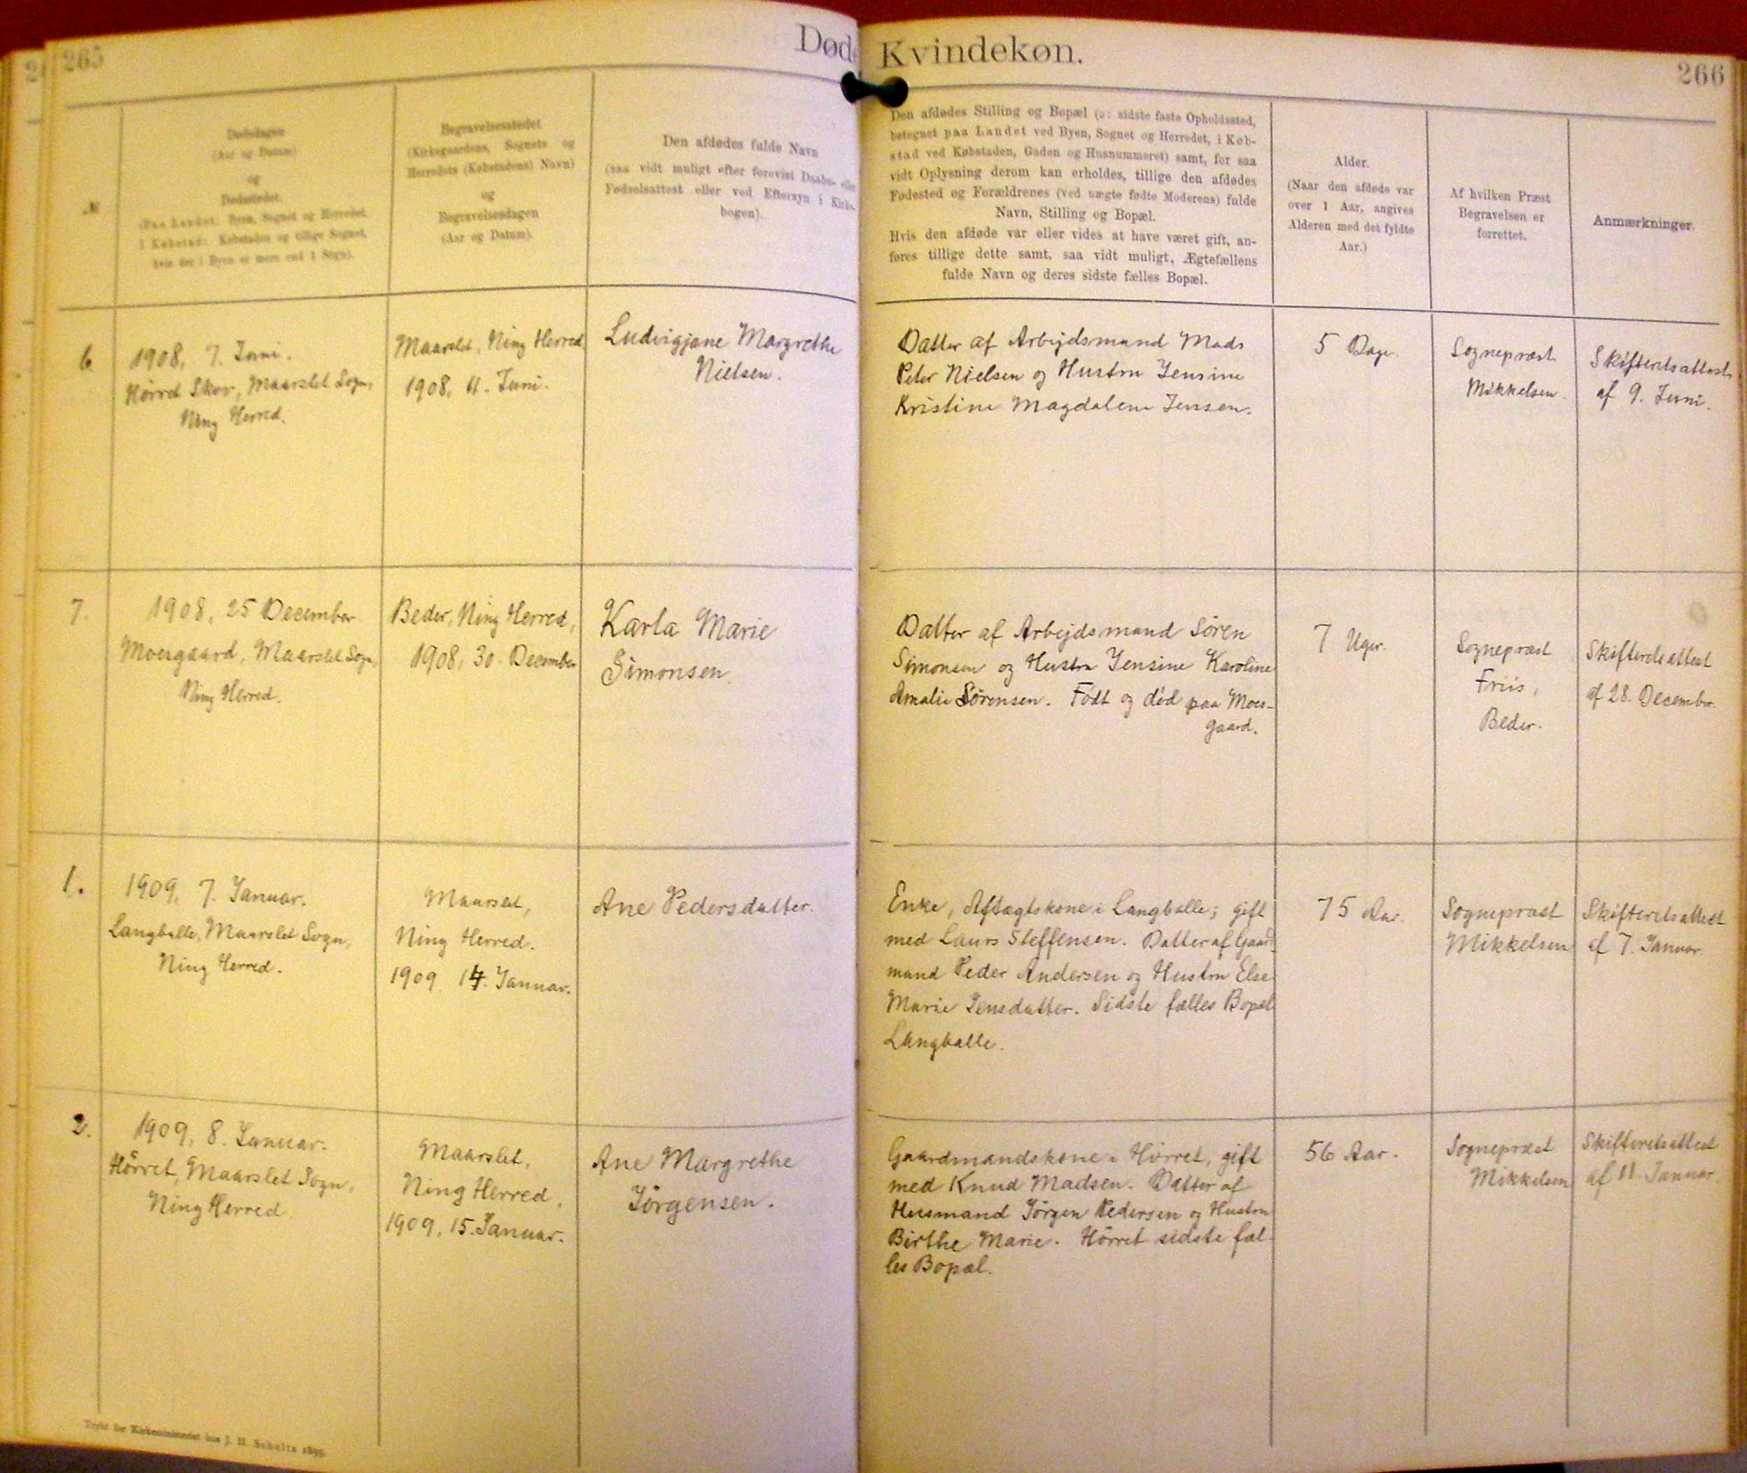 265
Døde
Kvindekøn.
266
№
Dødsdagen
(Aar og Datum)
og
Dødsstedet.
(Paa Landet: Byen, Sognet og Herredet,
i Købstad: Købstaden og tillige Sognet,
hvis der i Byen er mere end 1 Sogn).
Begravelsesstedet
(Kirkegaardens, Sognets og
Herredets (Købstadens) Navn)
og
Begravelsesdagen
(Aar og Datum).
Den afdødes fulde Navn
(saa vidt muligt efter forevist Daabs- eller
Fødselsattest eller ved Eftersyn i Kirke-
bogen).
Den afdødes Stilling og Bopæl (ɔ: sidste faste Opholdssted,
betegnet paa Landet ved Byen, Sognet og Herredet, i Køb-
stad ved Købstaden, Gaden og Husnummeret) samt, for saa
vidt Oplysning derom kan erholdes, tillige den afdødes
Fødested og Forældrenes (ved uægte fødte Moderens) fulde
Navn, Stilling og Bopæl.
Hvis den afdøde var eller vides at have været gift, an-
føres tillige dette samt, saa vidt muligt, Ægtefællens
fulde Navn og deres sidste fælles Bopæl.
Alder.
(Naar den afdøde var
over 1 Aar, angives
Alderen med det fyldte
Aar.)
Af hvilken Præst
Begravelsen er
forrettet.
Anmærkninger.
6
1908, 7. Juni.
Hørret Skov, Maarslet Sogn,
Ning Herred.
Maarslet, Ning Herred
1908, 11. Juni.
Ludvigjane Margrethe
Nielsen.
Datter af Arbejdsmand Mads
Peter Nielsen og Hustru Jensine
Kristine Magdalene Jensen.
5 Dage.
Sognepræst
Mikkelsen.
Skifteretsattest
af 9. Juni.
7.
1908, 25 December
Moesgaard, Maarslet Sogn,
Ning Herred.
Beder, Ning Herred,
1908, 30. December
Karla Marie
Simonsen.
Datter af Arbejdsmand Søren
Simonsen og Hustru Jensine Karoline
Amalie Sørensen. Født og død paa Moes-
gaard.
7 Uger.
Sognepræst
Friis,
Beder.
Skifteretsattest
af 28. December.
1.
1909, 7. Januar.
Langballe, Maarslet Sogn,
Ning Herred.
Maarslet,
Ning Herred.
1909 14. Januar.
Ane Pedersdatter.
Enke, Aftægtskone i Langballe; gift
med Laurs Steffensen. Datter af Gaard-
mand Peder Andersen og Hustru Else
Marie Jensdatter. Sidste fælles Bopæl
Langballe.
75 Aar.
Sognepræst
Mikkelsen
Skifteretsattest
af 7. Januar.
2.
1909, 8. Januar.
Hörret, Maarslet Sogn,
Ning Herred
Maarslet,
Ning Herred,
1909, 15. Januar.
Ane Margrethe
Jörgensen.
Gaardmandskone i Hörret, gift
med Knud Madsen. Datter af
Husmand Jörgen Pedersen og Hustru
Birthe Marie. Hörret sidste fæl-
les Bopæl.
56 Aar.
Sognepræst
Mikkelsen
Skifteretsattest
af 11 Januar.
Trykt for Kirkeministeriet hos J. H. Schultz 1895.